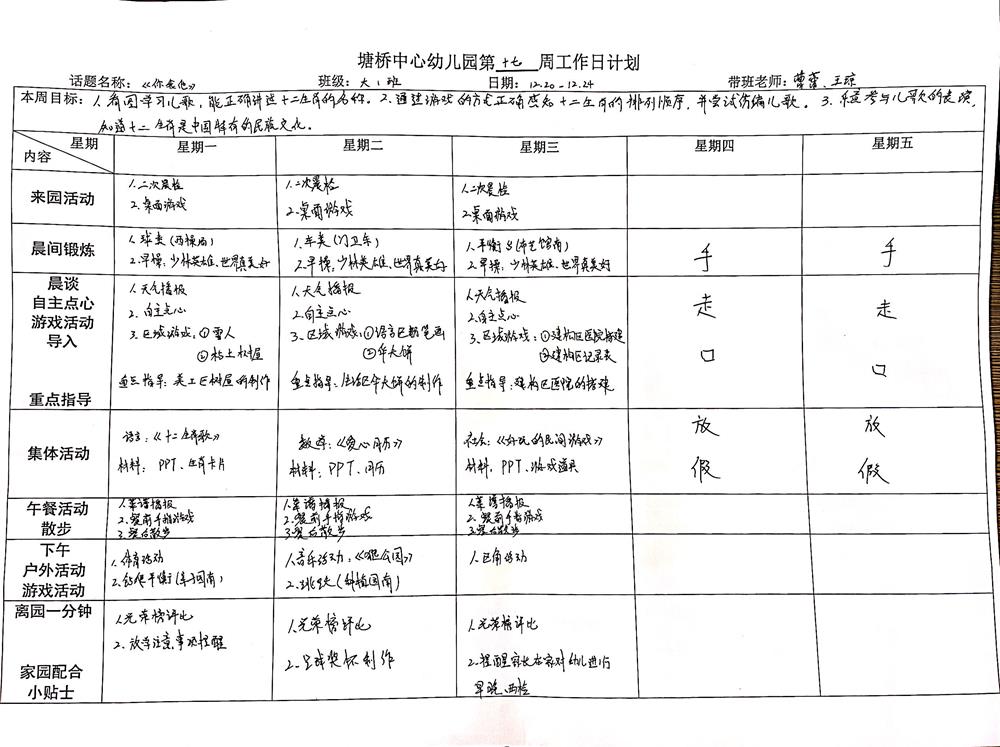 塘桥中心幼儿园第十七周工作日计划
话题名称： 班级：大1班 日期：12.20-12.24 带班老师：
本周目标：1.看图学习儿歌，能正确讲述十二生肖的名称。2.通过游戏的方式正确感知十二生肖的排列顺序，并尝试仿编儿歌。3.乐意参与儿歌的表演，
知道十二生肖是中国特有的民族文化。
星期 内容 星期一 星期二 星期三 星期四 星期五
来园活动 1.二次晨检 1.二次晨检 1.二次晨检
2.桌面游戏 2.桌面游戏 2.桌面游戏
晨间锻炼 1.球类(西操场) 1.车类(门卫车) 1.平衡 手 手
2.早操：少林英雄、世界真美好 2.早操：少林英雄、世界真美好 2.早操：少林英雄、世界真美好
晨谈 1.天气播报 1.天气播报 1.天气播报 走 走
自主点心 2.自主点心 2.自主点心 2.自主点心
游戏活动 3.区域游戏：①雪人 3.区域游戏：①语言区 3.区域游戏：①建构区医院搭建
导入 ②粘土树屋 ② ②建构区记录表 口 口
重点指导 重点指导：美工区树屋的制作 重点指导： 的制作 重点指导：建构区医院的搭建
集体活动 语言：《十二生肖歌》 数学：《爱心月历》 社会：《好玩的民间游戏》 放 放
材料：PPT、生肖卡片 材料：PPT、月历 材料：PPT、游戏道具 假 假
午餐活动 1.菜谱播报 1.菜谱播报 1.菜谱播报
散步 2.餐前手指游戏 2.餐前手指游戏 2.餐前手指游戏
3.餐后散步 3.餐后散步 3.餐后散步
下午 1.体育活动 1.音乐活动：《 公园》 1.区角活动
户外活动 2.钻爬平衡 2.跳跃(种植园南)
游戏活动
离园一分钟 1.光荣榜评比 1.光荣榜评比 1.光荣榜评比
2.放学注意事项提醒 2. 奖杯制作 2.提醒家长在家对幼儿进行
家园配合 早晚两检
小贴士